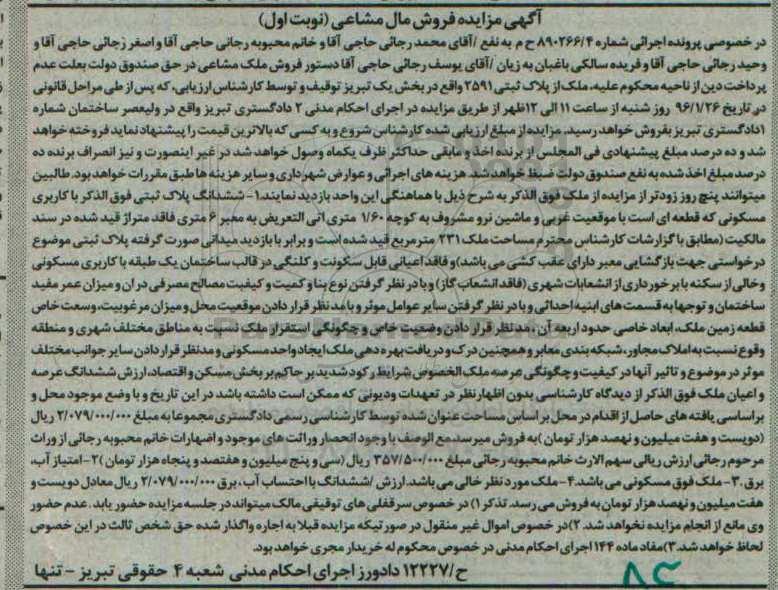 آگهی مزایده فروش مال مشاعی (نوبت اول)
در خصوصی پرونده اجرائی شماره ۸۹۰۲۶۶/۴ ح م به نفع /آقای محمد رجائی حاجی آقا و خانم محبوبه رجائی حاجی آقا و اصغر رجائی حاجی آقا و
وحید رجائی حاجی آقا و فریده سالکی باغبان به زیان /آقای یوسف رجائی حاجی آقا دستور فروش ملک مشاعی در حق صندوق دولت بعلت عدم
پرداخت دین از ناحیه محکوم علیه، ملک از پلاک ثبتی ۲۵۹۱ واقع در بخش یک تبریز توقیف و توسط کارشناس ارزیابی، که پس از طی مراحل قانونی
در تاریخ ۹۶/۱/۲۶ روز شنبه از ساعت ۱۱ الی ۱۲ظهر از طریق مزایده در اجرای احکام مدنی ۲ دادگستری تبریز واقع در ولیعصر ساختمان شماره
۱دادگستری تبریز بفروش خواهد رسید. مزایده از مبلغ ارزیابی شده کارشناس شروع و به کسی که بالاترین قیمت را پیشنهاد نماید فروخته خواهد
شد و ده درصد مبلغ پیشنهادی فی المجلس از برنده اخذ و مابقی حداکثر ظرف یکماه وصول خواهد شد در غیر اینصورت و نیز انصراف برنده ده
درصد مبلغ اخذ شده به نفع صندوق دولت ضبط خواهد شد. هزینه های اجرائی و عوارض شهرداری و سایر هزینه ها طبق مقررات خواهد بود. طالبین
میتوانند پنج روز زودتر از مزایده از ملک فوق الذکر به شرح ذیل با هماهنگی این واحد بازدید نمایند.۱- ششدانگ پلاک ثبتی فوق الذکر با کاربری
مسکونی که قطعه ای است با موقعیت غربی و ماشین نرو مشروف به کوچه ۱/۶۰ متری اتی التعریض به معبر ۶ متری فاقد متراژ قید شده در سند
مالکیت (مطابق با گزارشات کارشناس محترم مساحت ملک ۲۳۱ مترمربع قید شده است و برابر با بازدید میدانی صورت گرفته پلاک ثبتی موضوع
درخواستی جهت بازگشایی معبر دارای عقب کشی می باشد) و فاقد اعیانی قابل سکونت و کلنگی در قالب ساختمان یک طبقه با کاربری مسکونی
و خالی از سکنه با برخورداری از انشعابات شهری (فاقد انشعاب گاز) و با در نظر گرفتن نوع بنا و کمیت و کیفیت مصالح مصرفی در ان و میزان عمر مفید
ساختمان و توجها به قسمت های ابنیه احداثی و با در نظر گرفتن سایر عوامل موثر و با مد نظر قرار دادن موقعیت محل و میزان مرغوبیت، وسعت خاص
قطعه زمین ملک، ابعاد خاصی حدود اربعه آن، مد نظر قرار دادن وضعیت خاص و چگونگی استقرار ملک نسبت به مناطق مختلف شهری و منطقه
وقوع نسبت به املاک مجاور، شبکه بندی معابر و همچنین درک و دریافت بهره دهی ملک ایجاد واحد مسکونی و مد نظر قرار دادن سایر جوانب مختلف
موثر در موضوع و تاثیر آنها در کیفیت و چگونگی عرصه ملک الخصوص شرایط رکود شدید بر حاکم بر بخش مسکن و اقتصاد، ارزش ششدانگ عرصه
و اعیان ملک فوق الذکر از دیدگاه کارشناسی بدون اظهار نظر در تعهدات و دیونی که ممکن است داشته باشد در این تاریخ و با وضع موجود محل و
براساسی یافته های حاصل از اقدام در محل بر اساس مساحت عنوان شده توسط کارشناسی رسمی دادگستری مجموعا به مبلغ ۲/۰۷۹/۰۰۰/۰۰۰ ریال
(دویست و هفت میلیون و نهصد هزار تومان )به فروش میرسد.مع الوصف با وجود انحصار وراثت های موجود و اضهارات خانم محبوبه رجائی از وراث
مرحوم رجائی ارزش ریالی سهم الارث خانم محبوبه رجائی مبلغ ۳۵۷/۵۰۰/۰۰۰ ریال (سی و پنج میلیون و هفتصد و پنجاه هزار تومان )۲-امتیاز آب،
برق.۳- ملک فوق مسکونی می باشد.۴- ملک مورد نظر خالی می باشد. ارزش /ششدانگ با احتساب آب، برق ۲/۰۷۹/۰۰۰/۰۰۰ ریال معادل دویست و
هفت میلیون و نهصد هزار تومان به فروش می رسد. تذکر ۱) در خصوص سرقفلی های توقیفی مالک میتواند در جلسه مزایده حضور یابد . عدم حضور
وی مانع از انجام مزایده نخواهد شد. ۲)در خصوص اموال غیر منقول در صورتیکه مزایده قبلا به اجاره واگذار شده حق شخص ثالث در این خصوص
لحاظ خواهد شد.۳)مفاد ماده ۱۴۴ اجرای احکام مدنی در خصوص محکوم له خریدار مجری خواهد بود.
ح/۱۲۲۲۷ دادورز اجرای احکام مدنی شعبه ۴ حقوقی تبریز - تنها